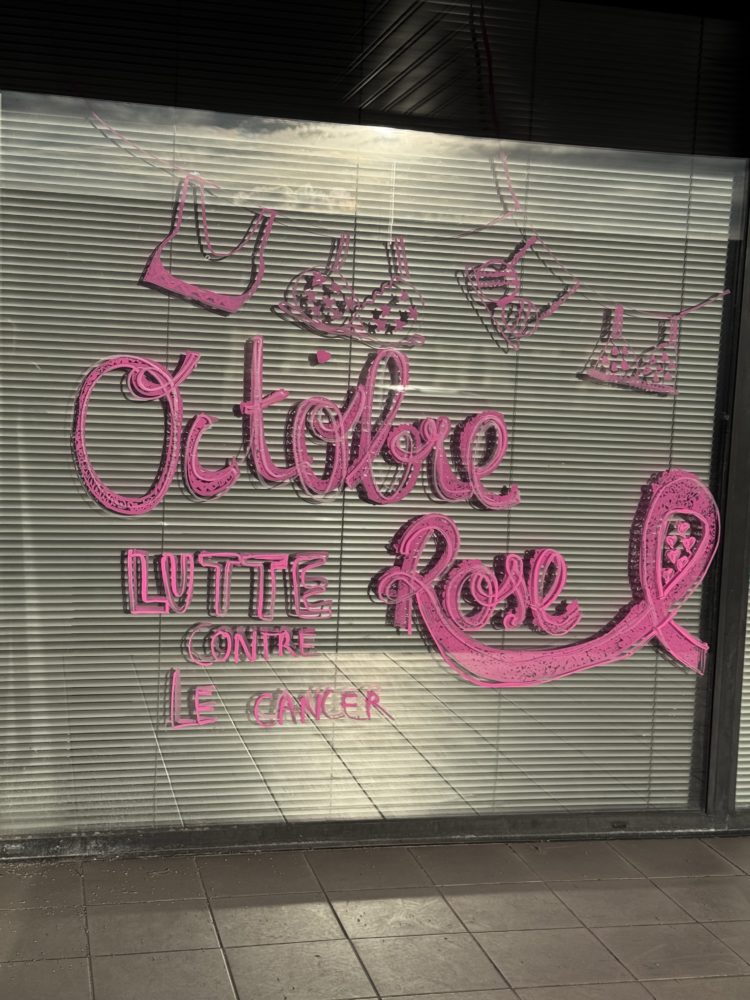 Octobre
Rose
LUTTE
CONTRE
LE CANCER